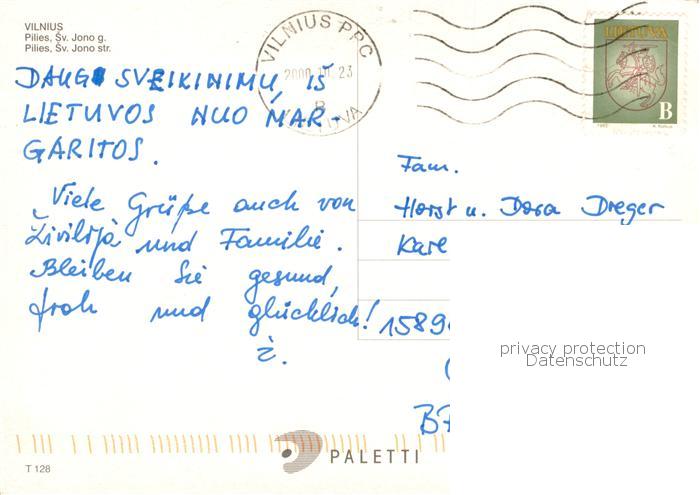 VILNIUS
Pilies, Šv. Jono g.
Pilies, Šv. Jono str.
VILNIUS PPC
LIETUVA
B
DAUG SVEIKINIMŲ IŠ
LIETUVOS NUO MAR-
GARITOS.
Viele Grüße auch von
Živilija und Familie.
Bleiben Sie gesund,
froh und glücklich!
Ž.
Fam.
Horst u. Dora Dreger
Kare
1589
privacy protection
Datenschutz
PALETTI
T 128